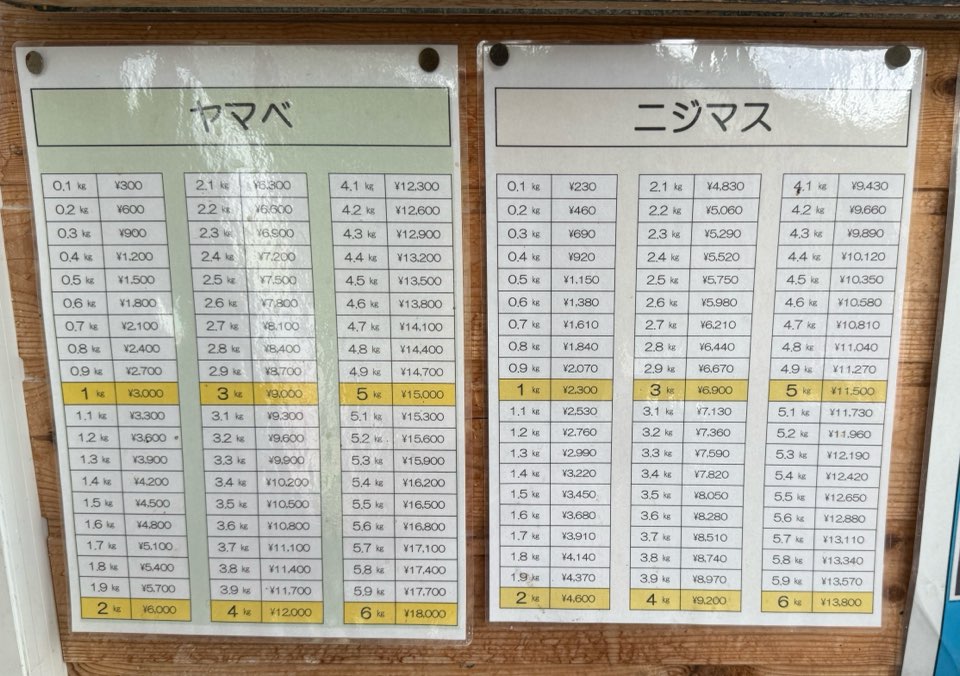 ヤマベ
0.1 kg ¥300 2.1 kg ¥6,300 4.1 kg ¥12,300
0.2 kg ¥600 2.2 kg ¥6,600 4.2 kg ¥12,600
0.3 kg ¥900 2.3 kg ¥6,900 4.3 kg ¥12,900
0.4 kg ¥1,200 2.4 kg ¥7,200 4.4 kg ¥13,200
0.5 kg ¥1,500 2.5 kg ¥7,500 4.5 kg ¥13,500
0.6 kg ¥1,800 2.6 kg ¥7,800 4.6 kg ¥13,800
0.7 kg ¥2,100 2.7 kg ¥8,100 4.7 kg ¥14,100
0.8 kg ¥2,400 2.8 kg ¥8,400 4.8 kg ¥14,400
0.9 kg ¥2,700 2.9 kg ¥8,700 4.9 kg ¥14,700
1 kg ¥3,000 3 kg ¥9,000 5 kg ¥15,000
1.1 kg ¥3,300 3.1 kg ¥9,300 5.1 kg ¥15,300
1.2 kg ¥3,600 3.2 kg ¥9,600 5.2 kg ¥15,600
1.3 kg ¥3,900 3.3 kg ¥9,900 5.3 kg ¥15,900
1.4 kg ¥4,200 3.4 kg ¥10,200 5.4 kg ¥16,200
1.5 kg ¥4,500 3.5 kg ¥10,500 5.5 kg ¥16,500
1.6 kg ¥4,800 3.6 kg ¥10,800 5.6 kg ¥16,800
1.7 kg ¥5,100 3.7 kg ¥11,100 5.7 kg ¥17,100
1.8 kg ¥5,400 3.8 kg ¥11,400 5.8 kg ¥17,400
1.9 kg ¥5,700 3.9 kg ¥11,700 5.9 kg ¥17,700
2 kg ¥6,000 4 kg ¥12,000 6 kg ¥18,000
ニジマス
0.1 kg ¥230 2.1 kg ¥4,830 4.1 kg ¥9,430
0.2 kg ¥460 2.2 kg ¥5,060 4.2 kg ¥9,660
0.3 kg ¥690 2.3 kg ¥5,290 4.3 kg ¥9,890
0.4 kg ¥920 2.4 kg ¥5,520 4.4 kg ¥10,120
0.5 kg ¥1,150 2.5 kg ¥5,750 4.5 kg ¥10,350
0.6 kg ¥1,380 2.6 kg ¥5,980 4.6 kg ¥10,580
0.7 kg ¥1,610 2.7 kg ¥6,210 4.7 kg ¥10,810
0.8 kg ¥1,840 2.8 kg ¥6,440 4.8 kg ¥11,040
0.9 kg ¥2,070 2.9 kg ¥6,670 4.9 kg ¥11,270
1 kg ¥2,300 3 kg ¥6,900 5 kg ¥11,500
1.1 kg ¥2,530 3.1 kg ¥7,130 5.1 kg ¥11,730
1.2 kg ¥2,760 3.2 kg ¥7,360 5.2 kg ¥11,960
1.3 kg ¥2,990 3.3 kg ¥7,590 5.3 kg ¥12,190
1.4 kg ¥3,220 3.4 kg ¥7,820 5.4 kg ¥12,420
1.5 kg ¥3,450 3.5 kg ¥8,050 5.5 kg ¥12,650
1.6 kg ¥3,680 3.6 kg ¥8,280 5.6 kg ¥12,880
1.7 kg ¥3,910 3.7 kg ¥8,510 5.7 kg ¥13,110
1.8 kg ¥4,140 3.8 kg ¥8,740 5.8 kg ¥13,340
1.9 kg ¥4,370 3.9 kg ¥8,970 5.9 kg ¥13,570
2 kg ¥4,600 4 kg ¥9,200 6 kg ¥13,800